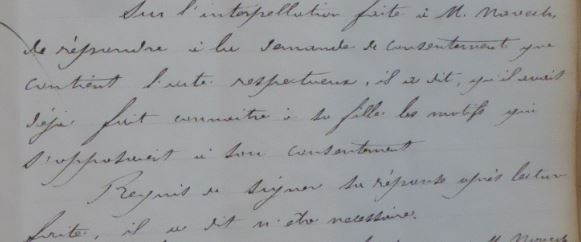 Sur l'interpellation faite à M. Novech,
de répondre à la demande de consentement que
contient l'acte respectueux, il a dit, qu'il avait
déjà fait connaitre à sa fille les motifs qui
s'opposaient à son consentement
Requis de signer sa réponse après lecture
faite, il a dit n'être nécessaire.